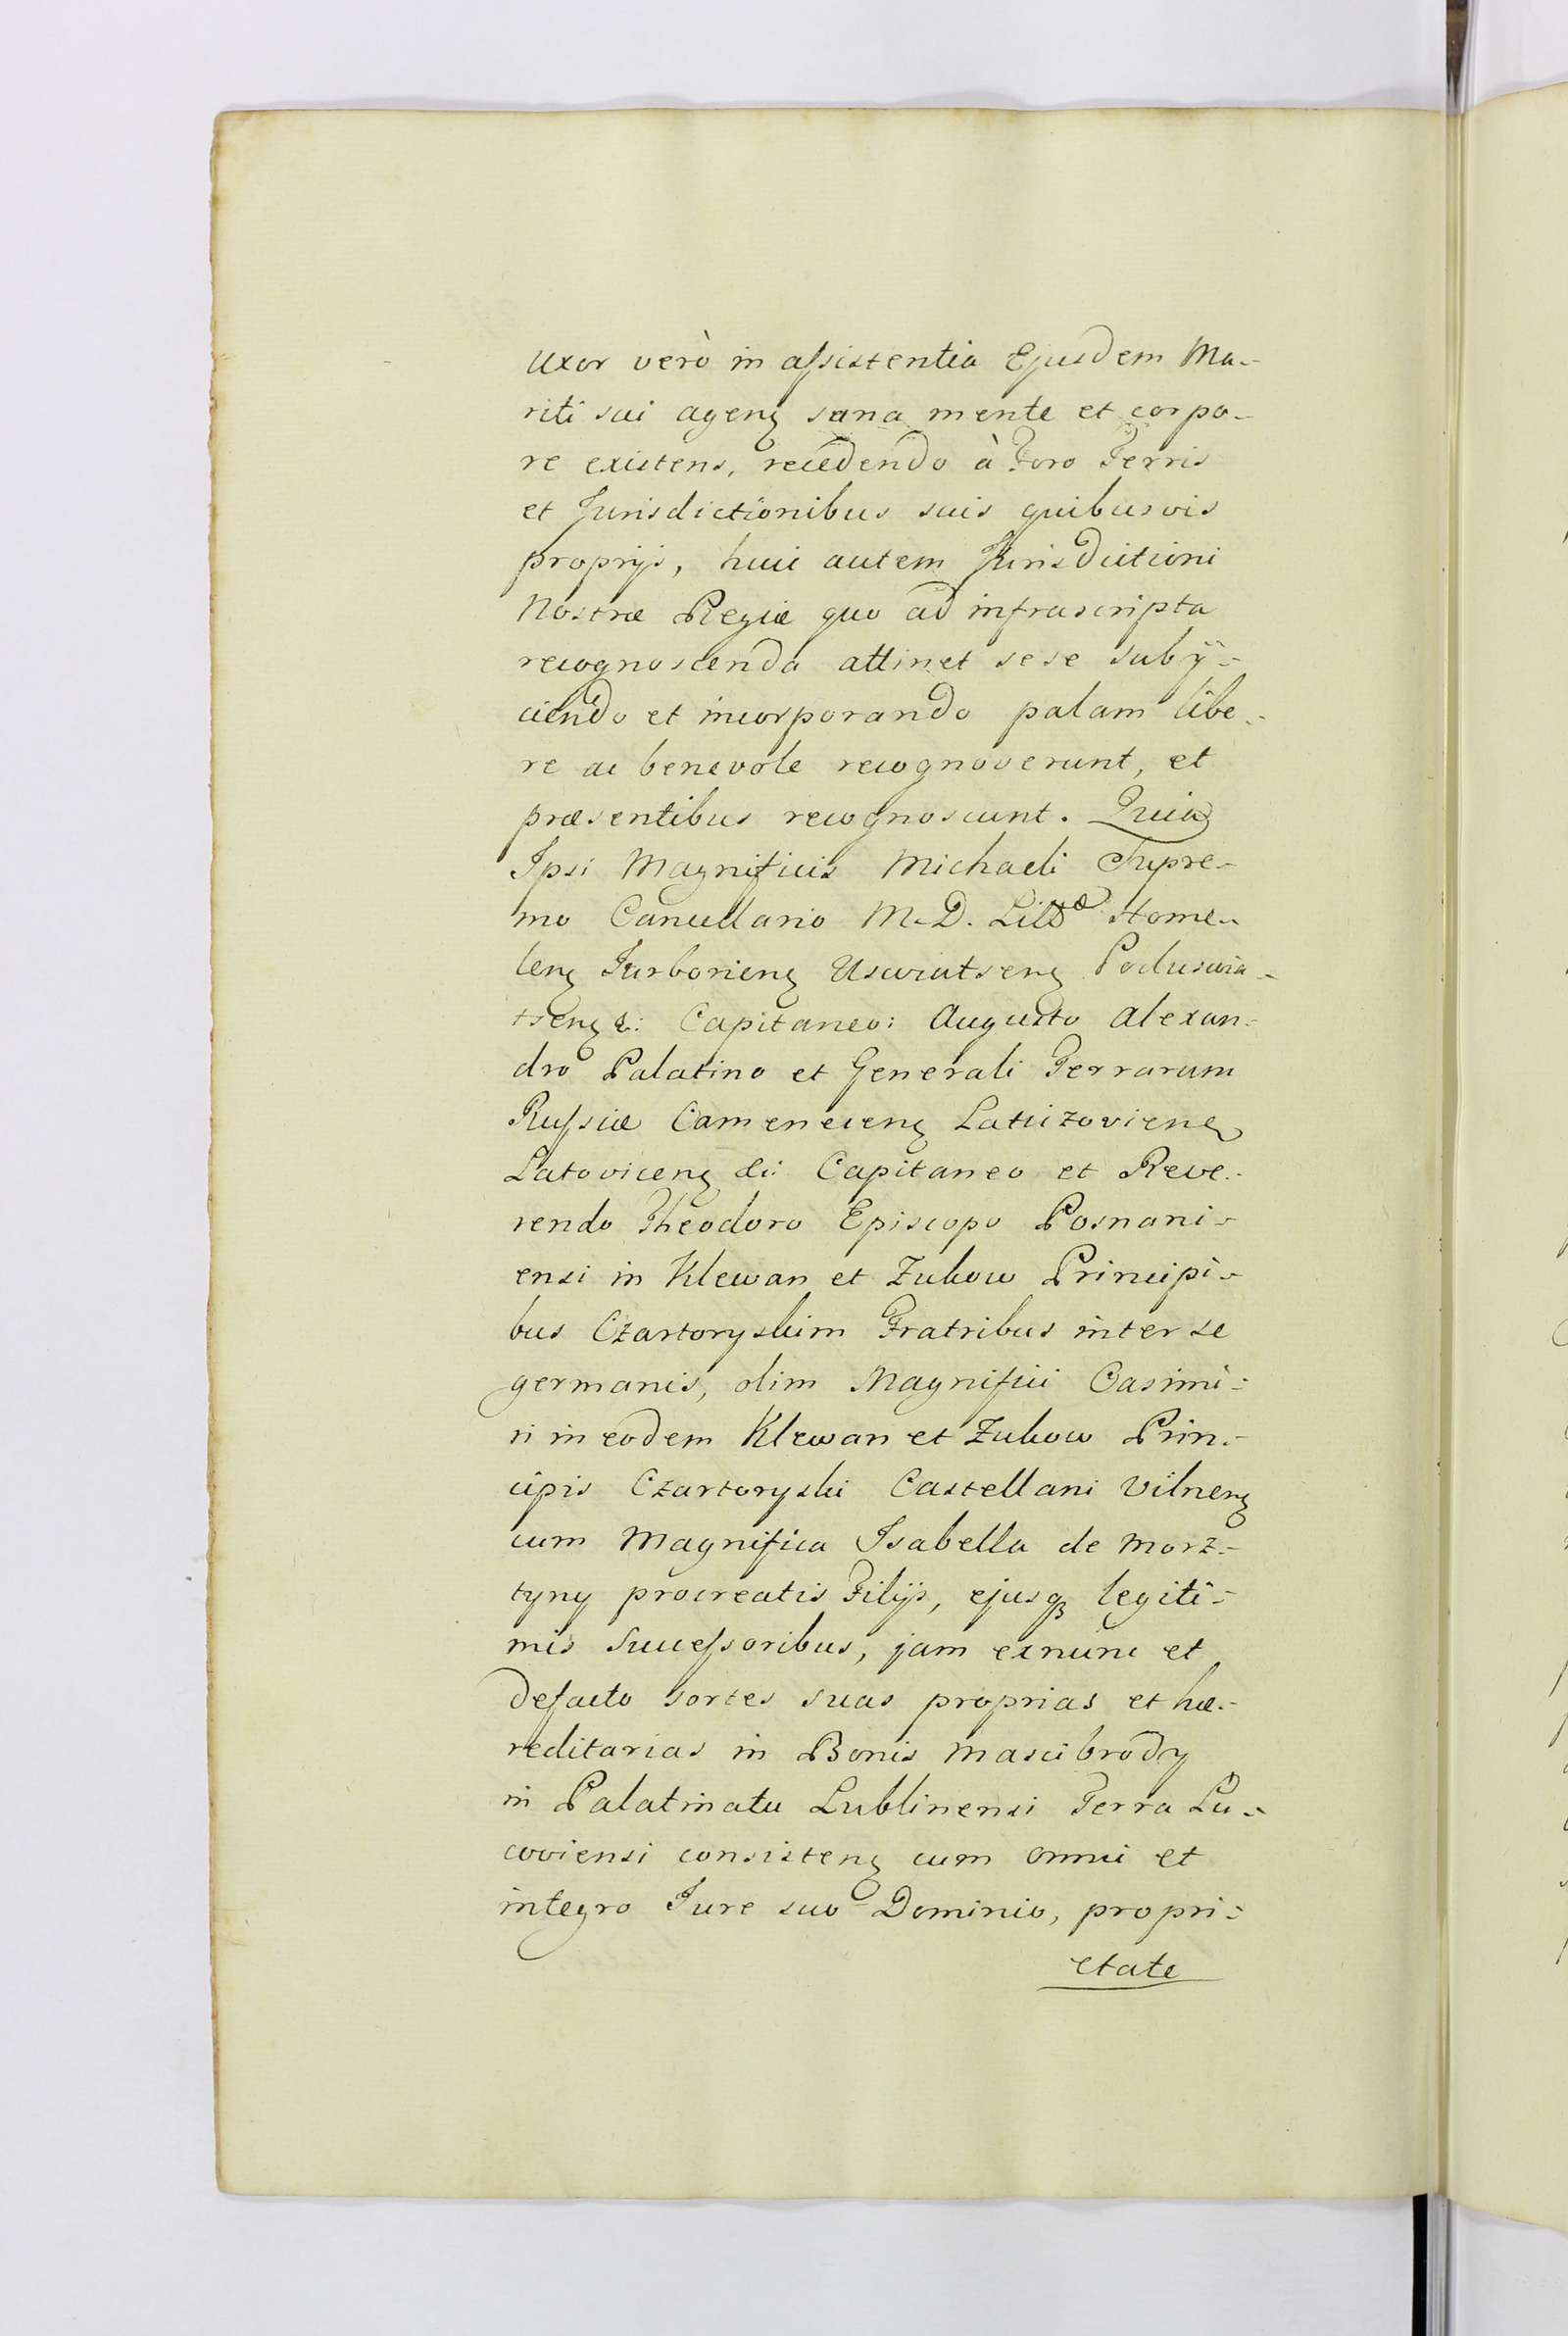 Uxor verò in aſsistentia Ejusdem Ma-
riti sui agenꝫ sana mente et corpo-
re existens, recedendo à Foro Terris
et Jurisdictionibus suis quibusvis
proprijs, huic autem Jurisdictioni
Nostræ Regiæ quo ad infrascripta
recognoscenda attinet sese subÿ-
ciendo et incorporando palam libe-
re ac benevole recognoverunt, et
præsentibus recognoscunt. Quia
Ipsi Magnificis Michaeli Supre-
mo Cancellario M.D. Litt^æ Home-
lenꝫ Jurborienꝫ Uswiatsenꝫ Poduswia-
tsenꝫ &: Capitaneo: Augusto Alexan-
dro Palatino et Generali Terrarum
Ruſsiæ Camenecenꝫ Latiizovienꝫ
Latovicenꝫ &: Capitaneo et Reve-
rendo Theodoro Episcopo Posnani-
ensi in Klewan et Zukow Principi-
bus Czartoryskim Fratribus inter se
germanis, olim Magnifici Casimi-
ri in eodem Klewan et Zukow Prin-
cipis Czartoryski Castellani Vilnenꝫ
cum Magnifica Isabella de Morz-
tyny procreatis Filijs, ejusqꝫ legiti-
mis Succeſsoribus, jam exnunc et
defacto sortes suas proprias et hæ-
reditarias in Bonis Mascibrody
in Palatinatu Lublinensi Terra Lu-
coviensi consistenꝫ cum omni et
integro Jure suo Dominio, propri-
etate